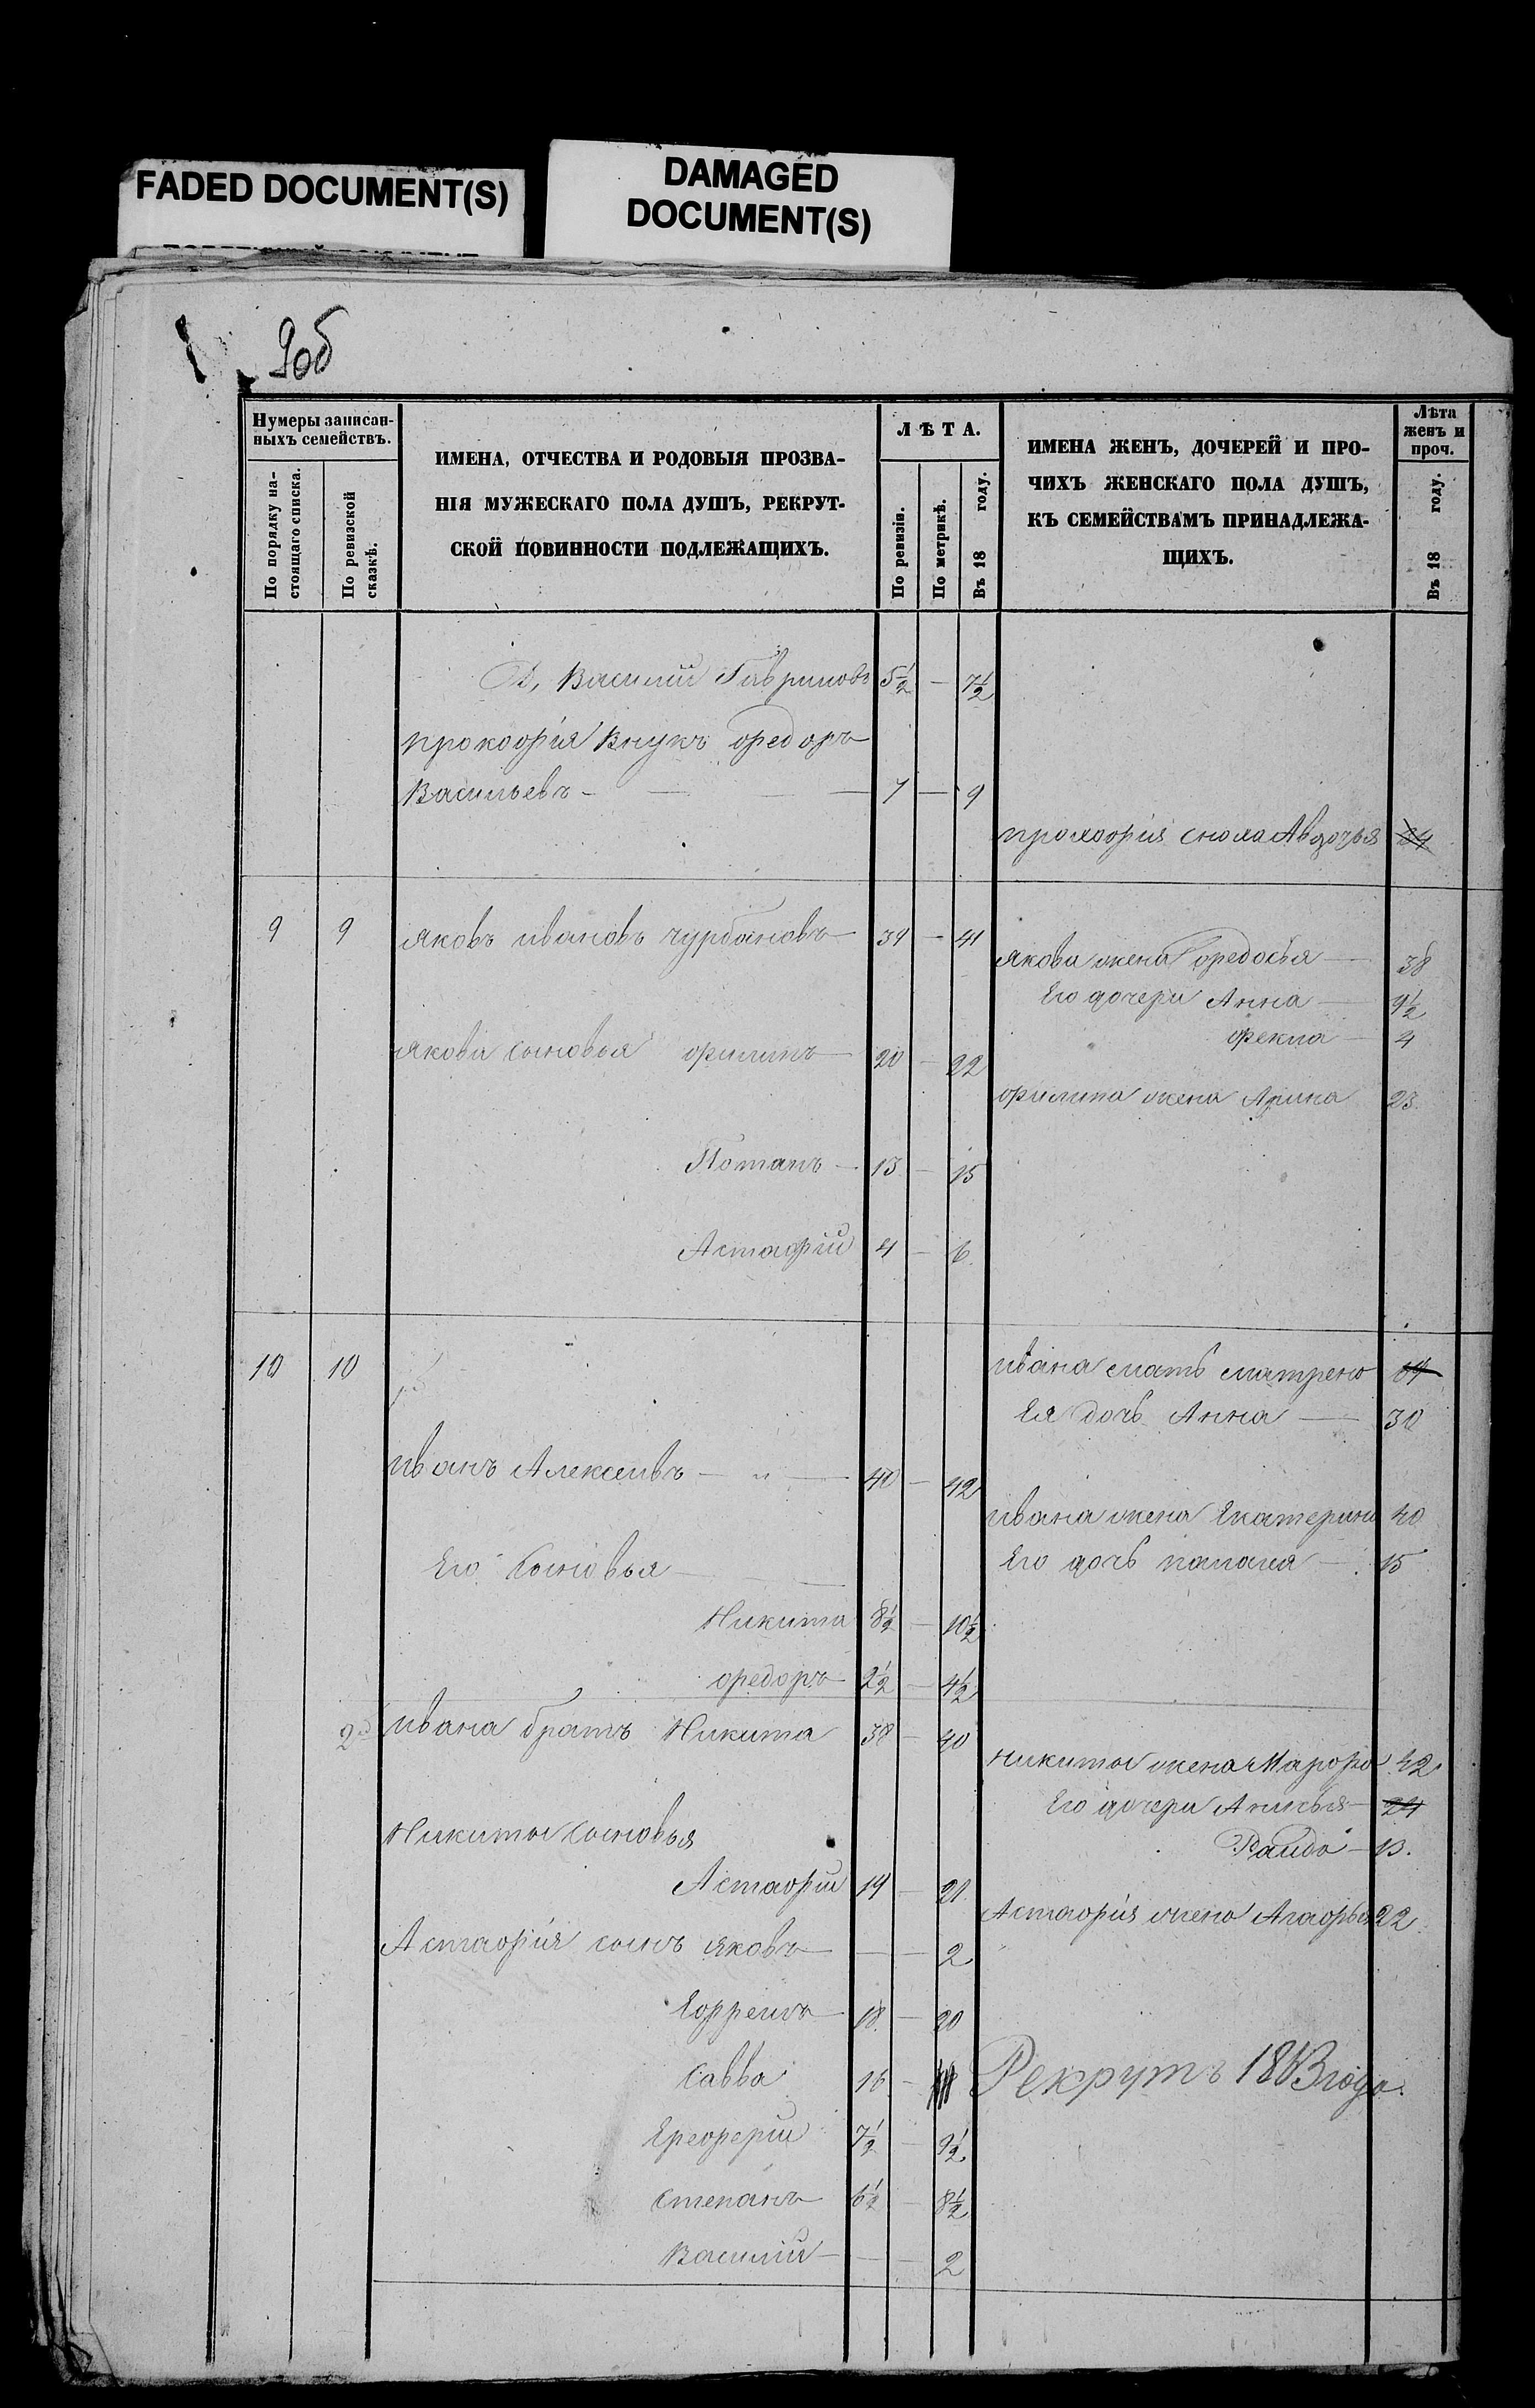 FADED DOCUMENT(S)
DAMAGED
DOCUMENT(S)
9об
Нумеры записан-
ныхъ семействъ.
По порядку на-
стоящаго списка.
По ревизской
сказкѣ.
ИМЕНА, ОТЧЕСТВА И РОДОВЫЯ ПРОЗВА-
НІЯ МУЖЕСКАГО ПОЛА ДУШЪ, РЕКРУТ-
СКОЙ ПОВИННОСТИ ПОДЛЕЖАЩИХЪ.
ЛѢТА.
По ревизіи.
По метрикѣ.
Въ 18 году.
ИМЕНА ЖЕНЪ, ДОЧЕРЕЙ И ПРО-
ЧИХЪ ЖЕНСКАГО ПОЛА ДУШЪ,
КЪ СЕМЕЙСТВАМЪ ПРИНАДЛЕЖА-
ЩИХЪ.
Лѣта
женъ и
проч.
Въ 18 году.
Василий Гавриловъ 5½ — 7½
прокофія внукъ федоръ
Васильевъ — 7 — 9
прокофія сноха Авдотья
9 9 яковъ ивановъ чурбановъ — 39 — 41
якова жена федосья — 38
Его дочери Анна — 9½
фекла — 4
якова сыновья филипъ — 20 — 22
филипа жена Арина 23
Потапъ — 13 — 15
Астафій 4 — 6
10 10
ивана мать матрена
Ея дочь Анна — 30
иванъ Алексеивъ — " — 40 — 42
ивана жена Екатерина 40
Его сыновья
Его дочь палагея — 15
Никита 8½ — 10½
федоръ 2½ — 4½
2й ивана братъ Никита 38 — 40
никиты жена Марфа 42
Его дочери Аксинья 24
Никиты сыновья
Раида — 13.
Астафій 19 — 21
Астафія жена Агафья 22
Астафія сынъ яковъ — — 2
Ефремъ — 18 — 20
савва 16 — 18 Рекрутъ 1863 года.
Ероферій 7½ — 9½
степанъ 6½ — 8½
Василий — — 2